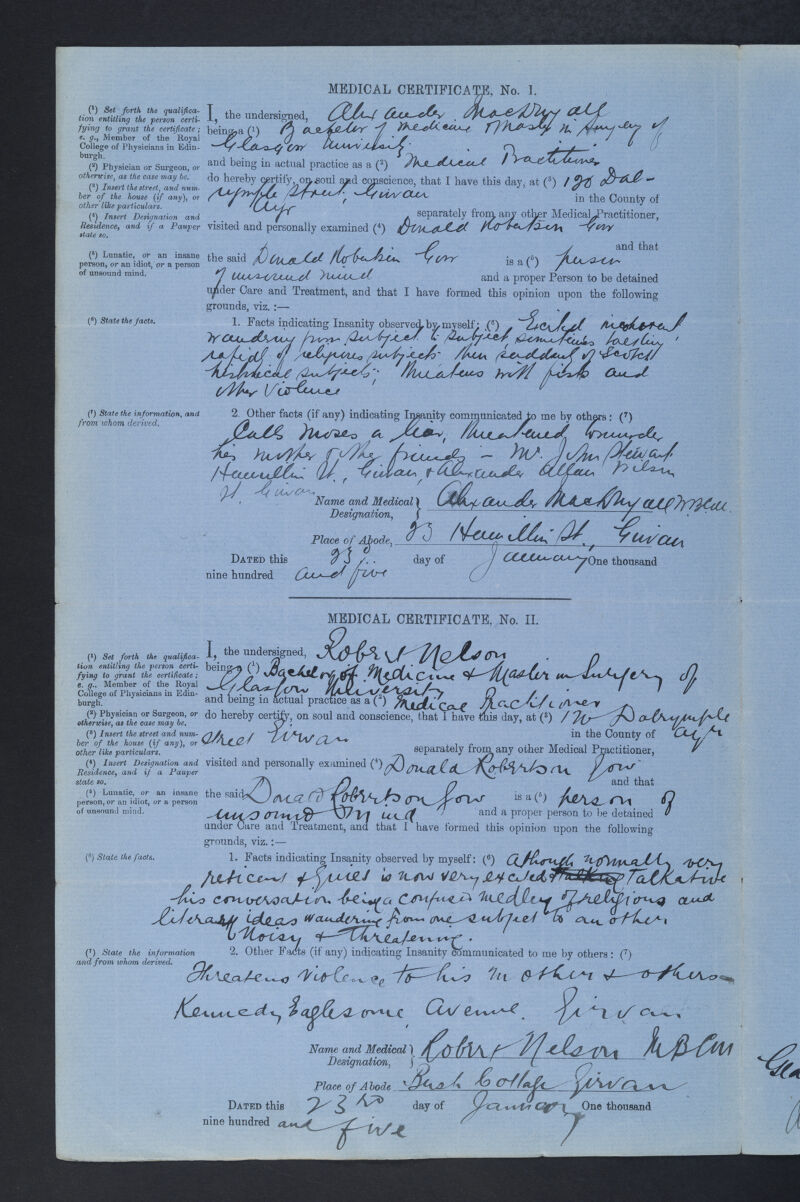 MEDICAL CERTIFICATE, No. I.
(1) Set forth the qualifica-
tion entitling the person certi-
fying to grant the certificate;
e. g., Member of the Royal
College of Physicians in Edin-
burgh.
(2) Physician or Surgeon, or
otherwise, as the case may be.
(3) Insert the street, and num-
ber of the house (if any), or
other like particulars.
(4) Insert Designation and
Residence, and if a Pauper
state so.
(5) Lunatic, or an insane
person, or an idiot, or a person
of unsound mind.
(6) State the facts.
(7) State the information, and
from whom derived.
I, the undersigned, Alexander MacDhugall
being a (1) Bachelor of Medicine & Master in Surgery of
Glasgow University
and being in actual practice as a (2) Medical Practitioner
do hereby certify, on soul and conscience, that I have this day, at (3) 120 Dal-
rymple Street, Girvan in the County of
Ayr separately from any other Medical Practitioner,
visited and personally examined (4) Donald Robertson Gow
and that
the said Donald Robertson Gow is a (5) person
of unsound mind and a proper Person to be detained
under Care and Treatment, and that I have formed this opinion upon the following
grounds, viz.:—
1. Facts indicating Insanity observed by myself: (6) Excited incoherent,
wandering from subject to subject sometimes talking
rapidly of religious subjects then suddenly of Scotch
historical subjects; threatens with fists and
other violence
2. Other facts (if any) indicating Insanity communicated to me by others: (7)
Calls Moses a liar, threatened to murder
his mother & other friends – Mr. John Stewart
Hamilton St., Girvan, & Alexander Allan Wilson
St. Girvan
Name and Medical Designation, Alexander MacDhugall M.B.C.M.
Place of Abode, 23 Hamilton St., Girvan
DATED this 23d day of January One thousand
nine hundred and five
MEDICAL CERTIFICATE, No. II.
(1) Set forth the qualifica-
tion entitling the person certi-
fying to grant the certificate;
e. g., Member of the Royal
College of Physicians in Edin-
burgh.
(2) Physician or Surgeon, or
otherwise, as the case may be.
(3) Insert the street and num-
ber of the house (if any), or
other like particulars.
(4) Insert Designation and
Residence, and if a Pauper
state so.
(5) Lunatic, or an insane
person, or an idiot, or a person
of unsound mind.
(6) State the facts.
(7) State the information
and from whom derived.
I, the undersigned, Robert Nelson
being a (1) Bachelor of Medicine & Master in Surgery of
Glasgow University
and being in actual practice as a (2) Medical Practitioner
do hereby certify, on soul and conscience, that I have this day, at (3) 120 Dalrymple
Street Girvan in the County of Ayr
separately from any other Medical Practitioner,
visited and personally examined (4) Donald Robertson Gow
and that
the said Donald Robertson Gow is a (5) person of
unsound Mind and a proper person to be detained
under Care and Treatment, and that I have formed this opinion upon the following
grounds, viz.:—
1. Facts indicating Insanity observed by myself: (6) Although normally very
reticent & quiet is now very excited & talkative
his conversation being a confused medley of religious and
literary ideas wandering from one subject to another.
Noisy & threatening.
2. Other Facts (if any) indicating Insanity communicated to me by others: (7)
Threatens violence to his mother & others –
Kennedy Eaglesome, Avenue, Girvan
Name and Medical Designation, Robert Nelson M B CM
Place of Abode Bush Cottage Girvan
DATED this 23rd day of January One thousand
nine hundred and five